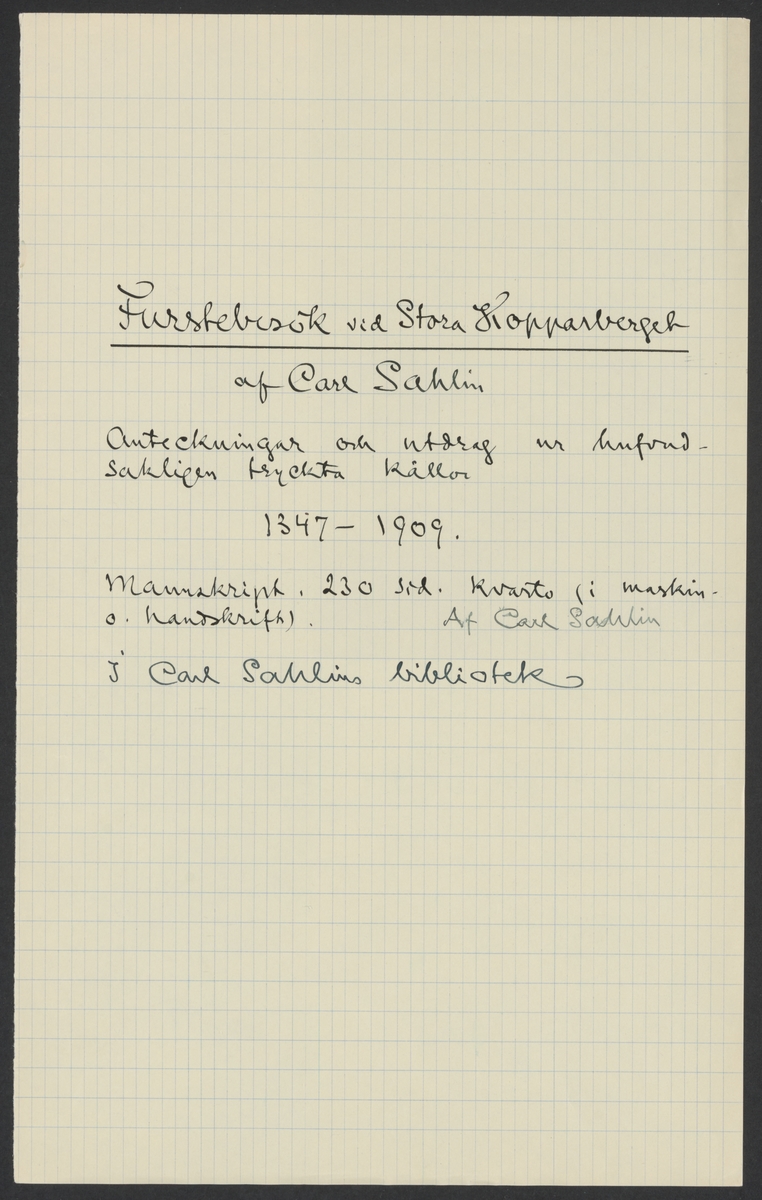 Furstebesök vid Stora Kopparberget
af Carl Sahlin
Anteckningar och utdrag ur hufvud-
sakligen tryckta källor
1347 - 1909.
Manuskript. 230 sid. kvarto (i maskin-
o. handskrift). Af Carl Sahlin
I Carl Sahlins bibliotek